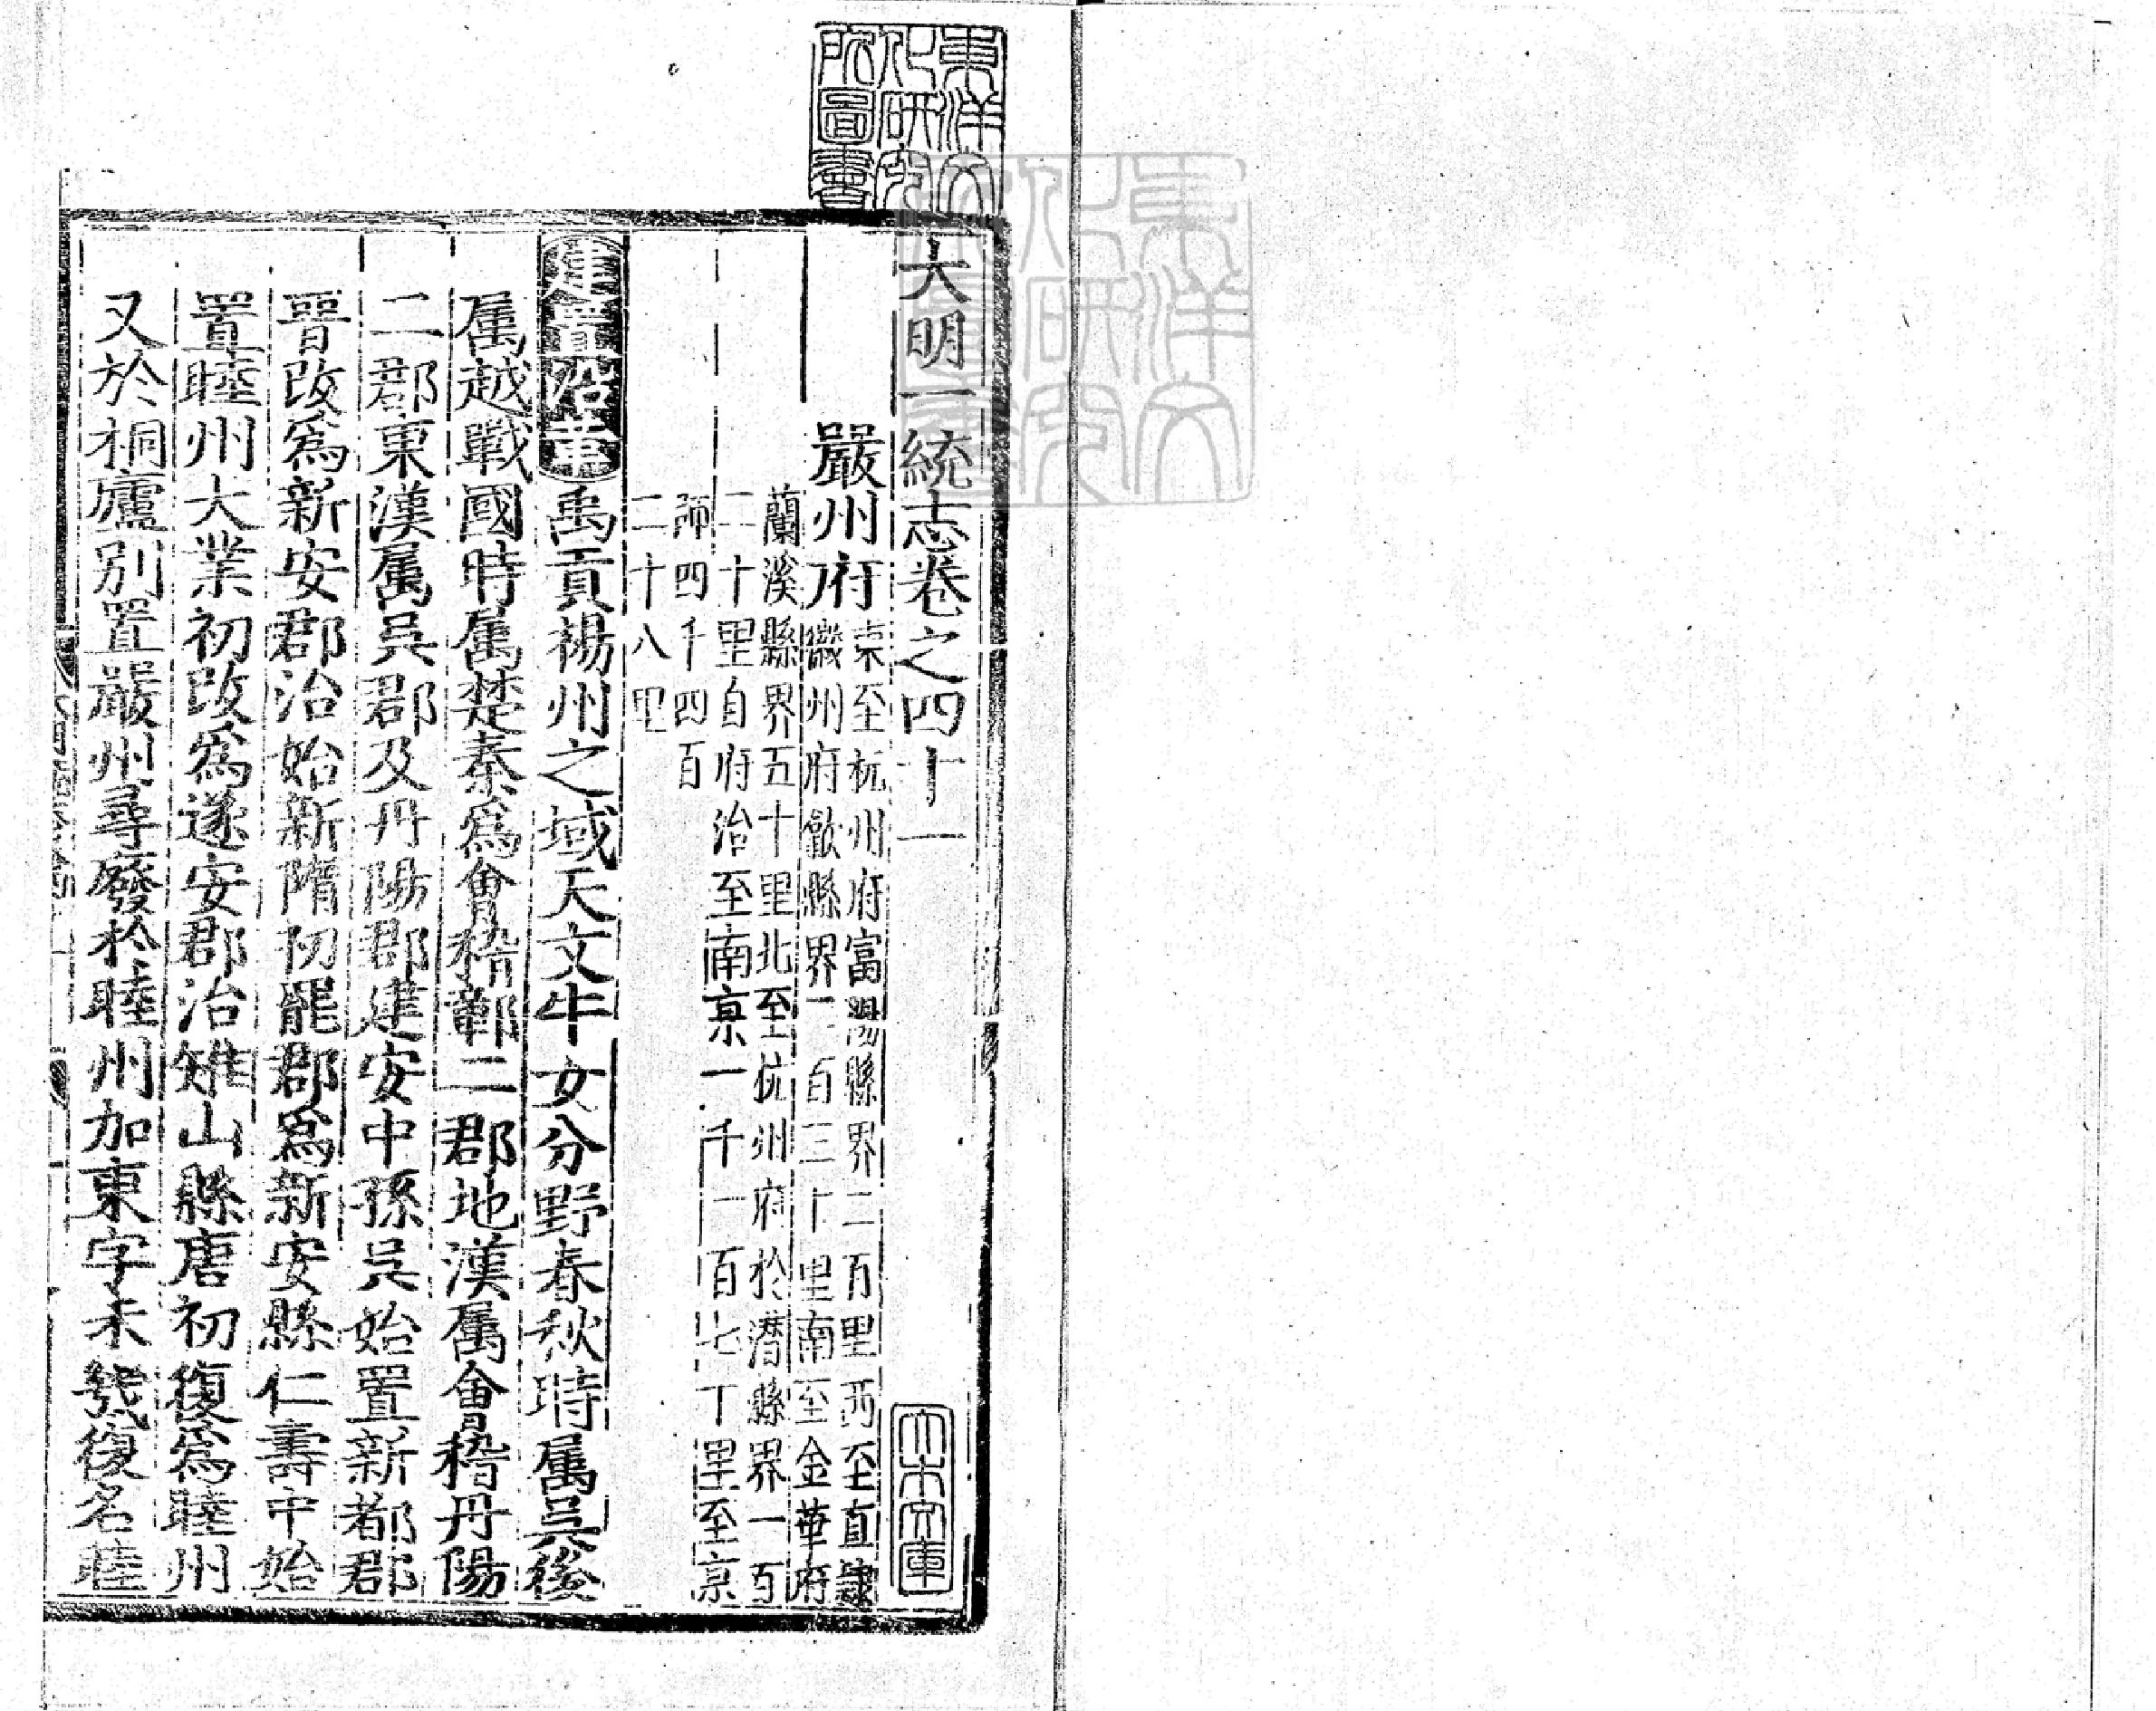 東洋文
化研究
所圖書
大明一統志卷之四十一
嚴州府
東至杭州府富陽縣界二百里西至直隷
徽州府歙縣界一百三十里南至金華府
蘭溪縣界五十里北至杭州府於潛縣界一百
二十里自府治至南京一千一百七十里至京
師四千四百
二十八里
建置沿革禹貢楊州之域天文牛女分野春秋時属吳後
属越戰國時属楚秦爲會稽鄣二郡地漢属會稽丹陽
二郡東漢属吳郡及丹陽郡建安中孫吳始置新都郡
晋改爲新安郡治始新隋初罷郡爲新安縣仁壽中始
置睦州大業初改爲遂安郡治雉山縣唐初復爲睦州
又於桐廬别置嚴州尋廢於睦州加東字未幾復名睦